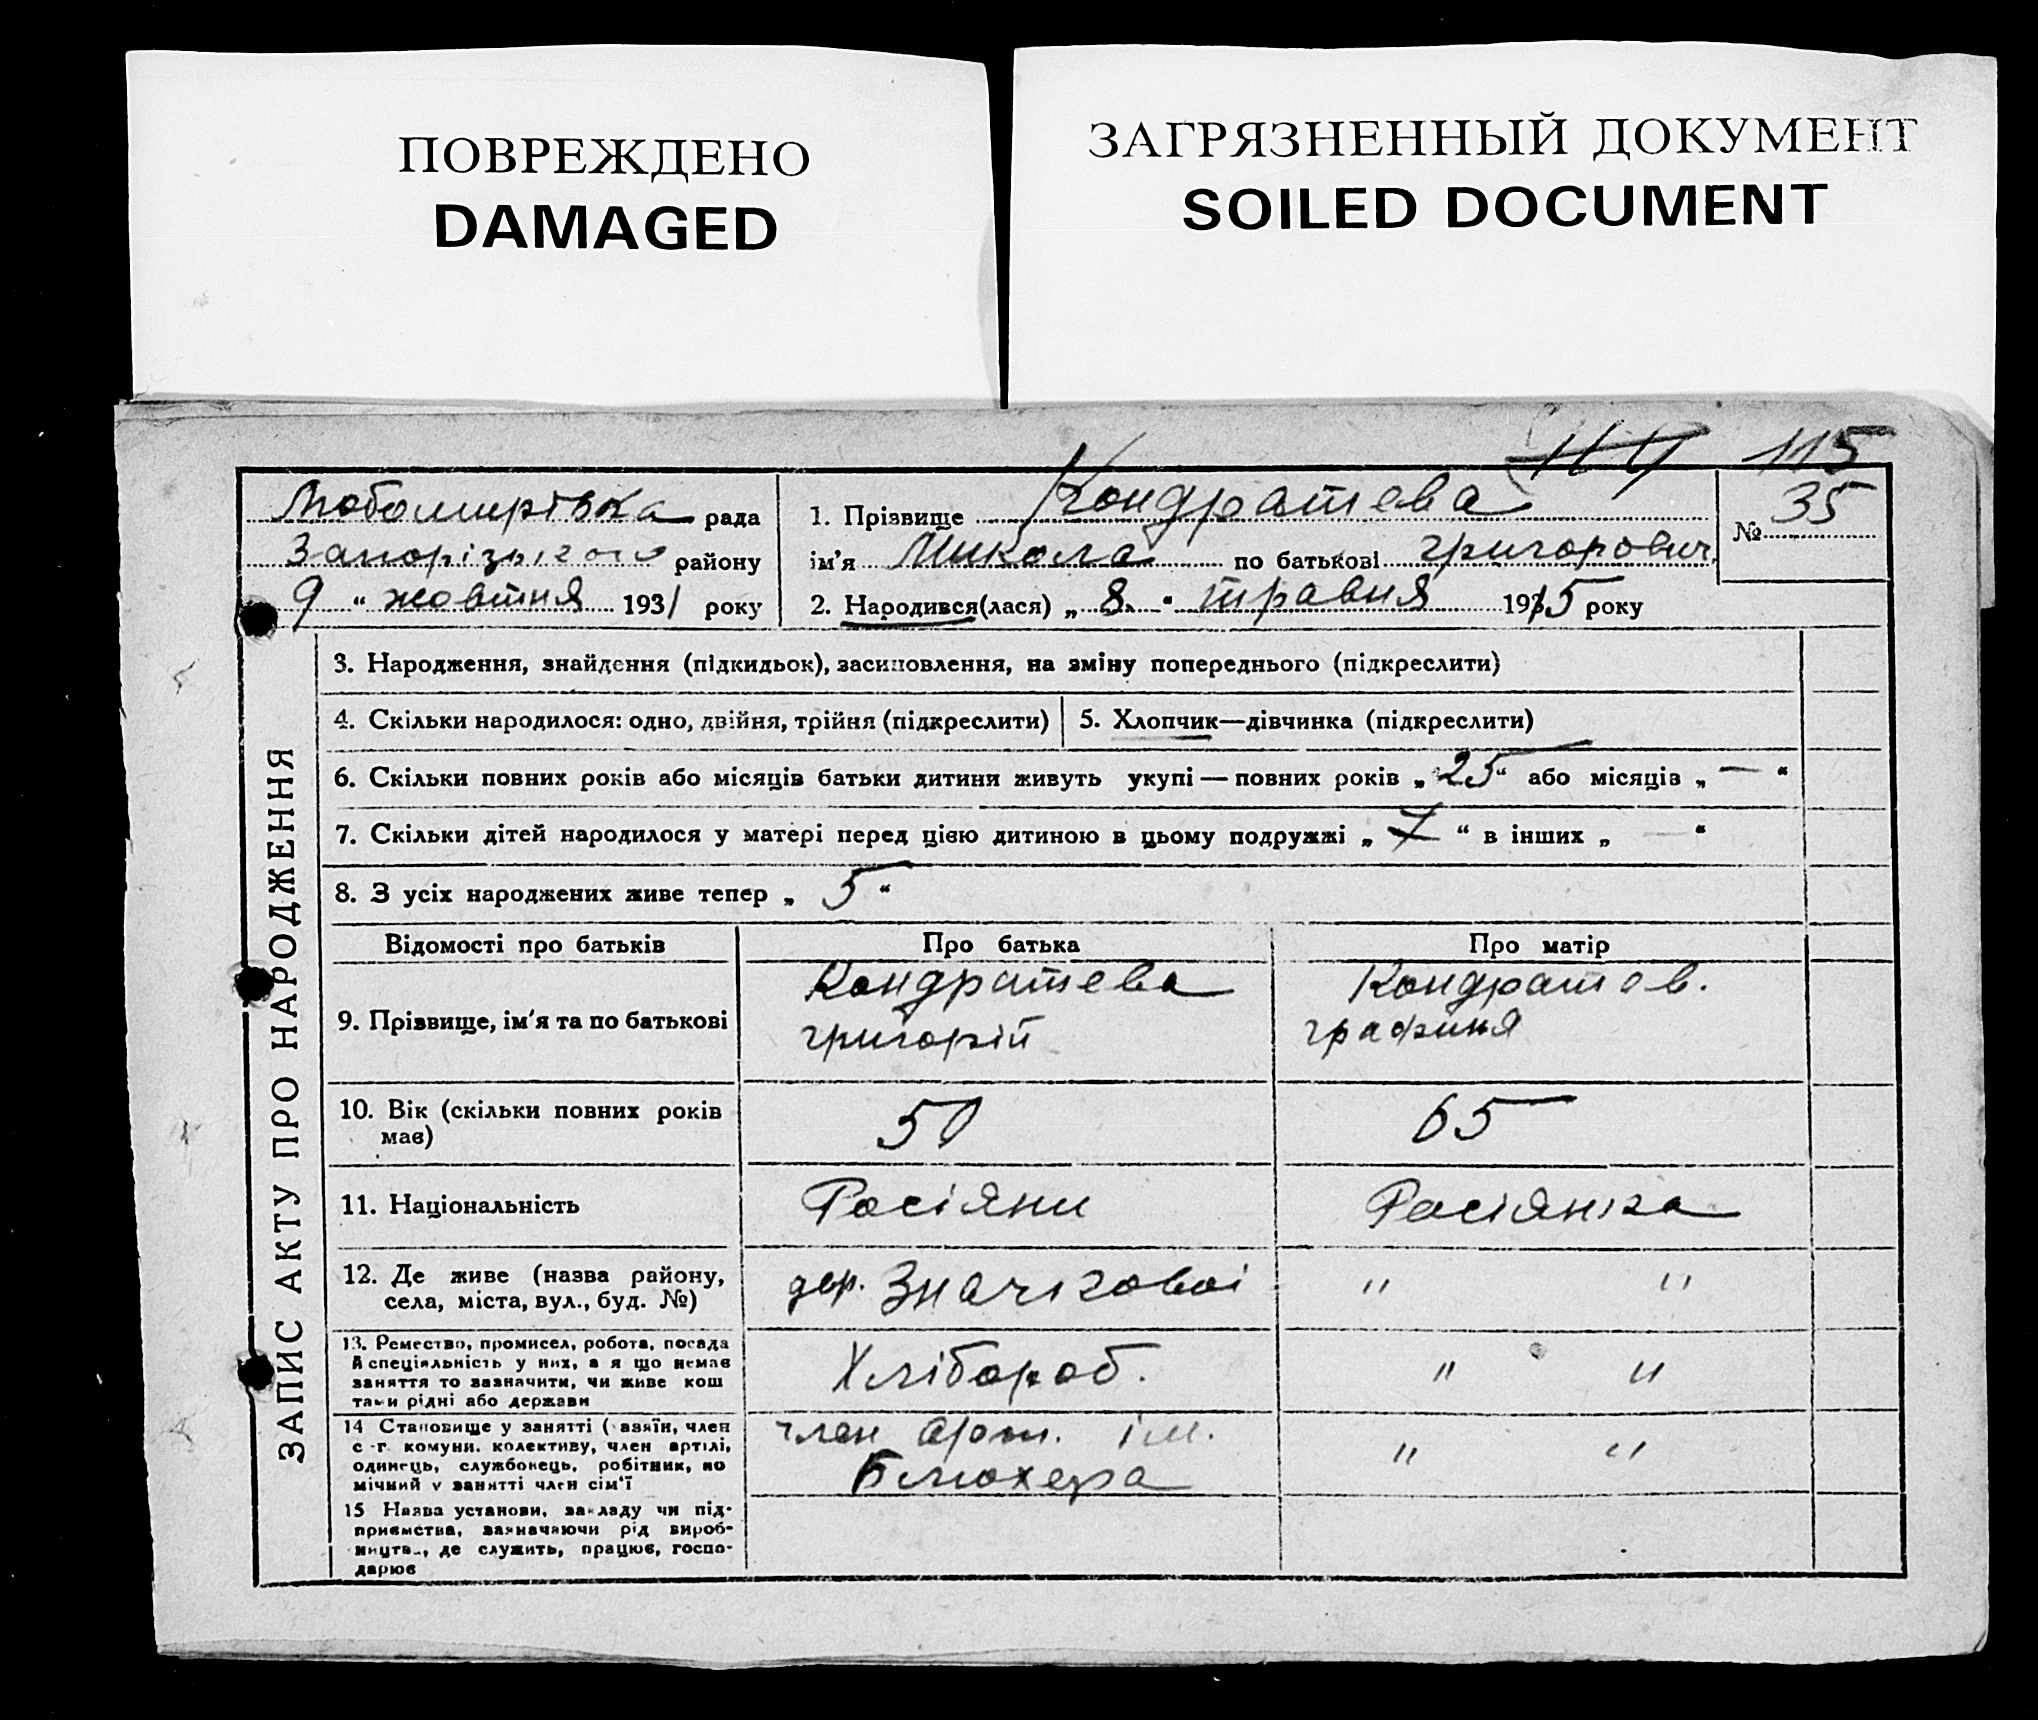 ПОВРЕЖДЕНО
DAMAGED
ЗАГРЯЗНЕННЫЙ ДОКУМЕНТ
SOILED DOCUMENT
114 115
Любомирівка рада
Запорізького району
9 " жовтня 1931 року
1. Прізвище Кондратева
ім'я Микола по батькові Григорович
2. Народився(лася) „ 8 " травня 1915 року
№ 35
ЗАПИС АКТУ ПРО НАРОДЖЕННЯ
3. Народження, знайдення (підкидьок), засиновлення, на зміну попереднього (підкреслити)
4. Скільки народилося: одно, двійня, трійня (підкреслити)
5. Хлопчик—дівчинка (підкреслити)
6. Скільки повних років або місяців батьки дитини живуть укупі — повних років „ 25 " або місяців „ — "
7. Скільки дітей народилося у матері перед цією дитиною в цьому подружжі „ 7 " в інших „ — "
8. З усіх народжених живе тепер „ 5 "
Відомості про батьків Про батька Про матір
9. Прізвище, ім'я та по батькові
Кондратева
григорій
Кондратев.
графиня
10. Вік (скільки повних років
має)
50
65
11. Національність
Росіяни
Росіянка
12. Де живе (назва району,
села, міста, вул., буд. №)
" "
13. Ремество, промисел, робота, посада
й спеціяльність у них, а я що немає
заняття то зазначити, чи живе кош
тами рідні або держави
Хлібороб.
" "
14 Становище у занятті (хазяїн, член
с-г. комуни. колективу, член артілі,
одинець, службовець, робітник, по
мічний у занятті член сім'ї
член арт. ім.
Блюхера
" "
15 Назва установи, закладу чи під-
приємства, зазначаючи рід вироб-
ництва, де служить, працює, госпо-
дарює